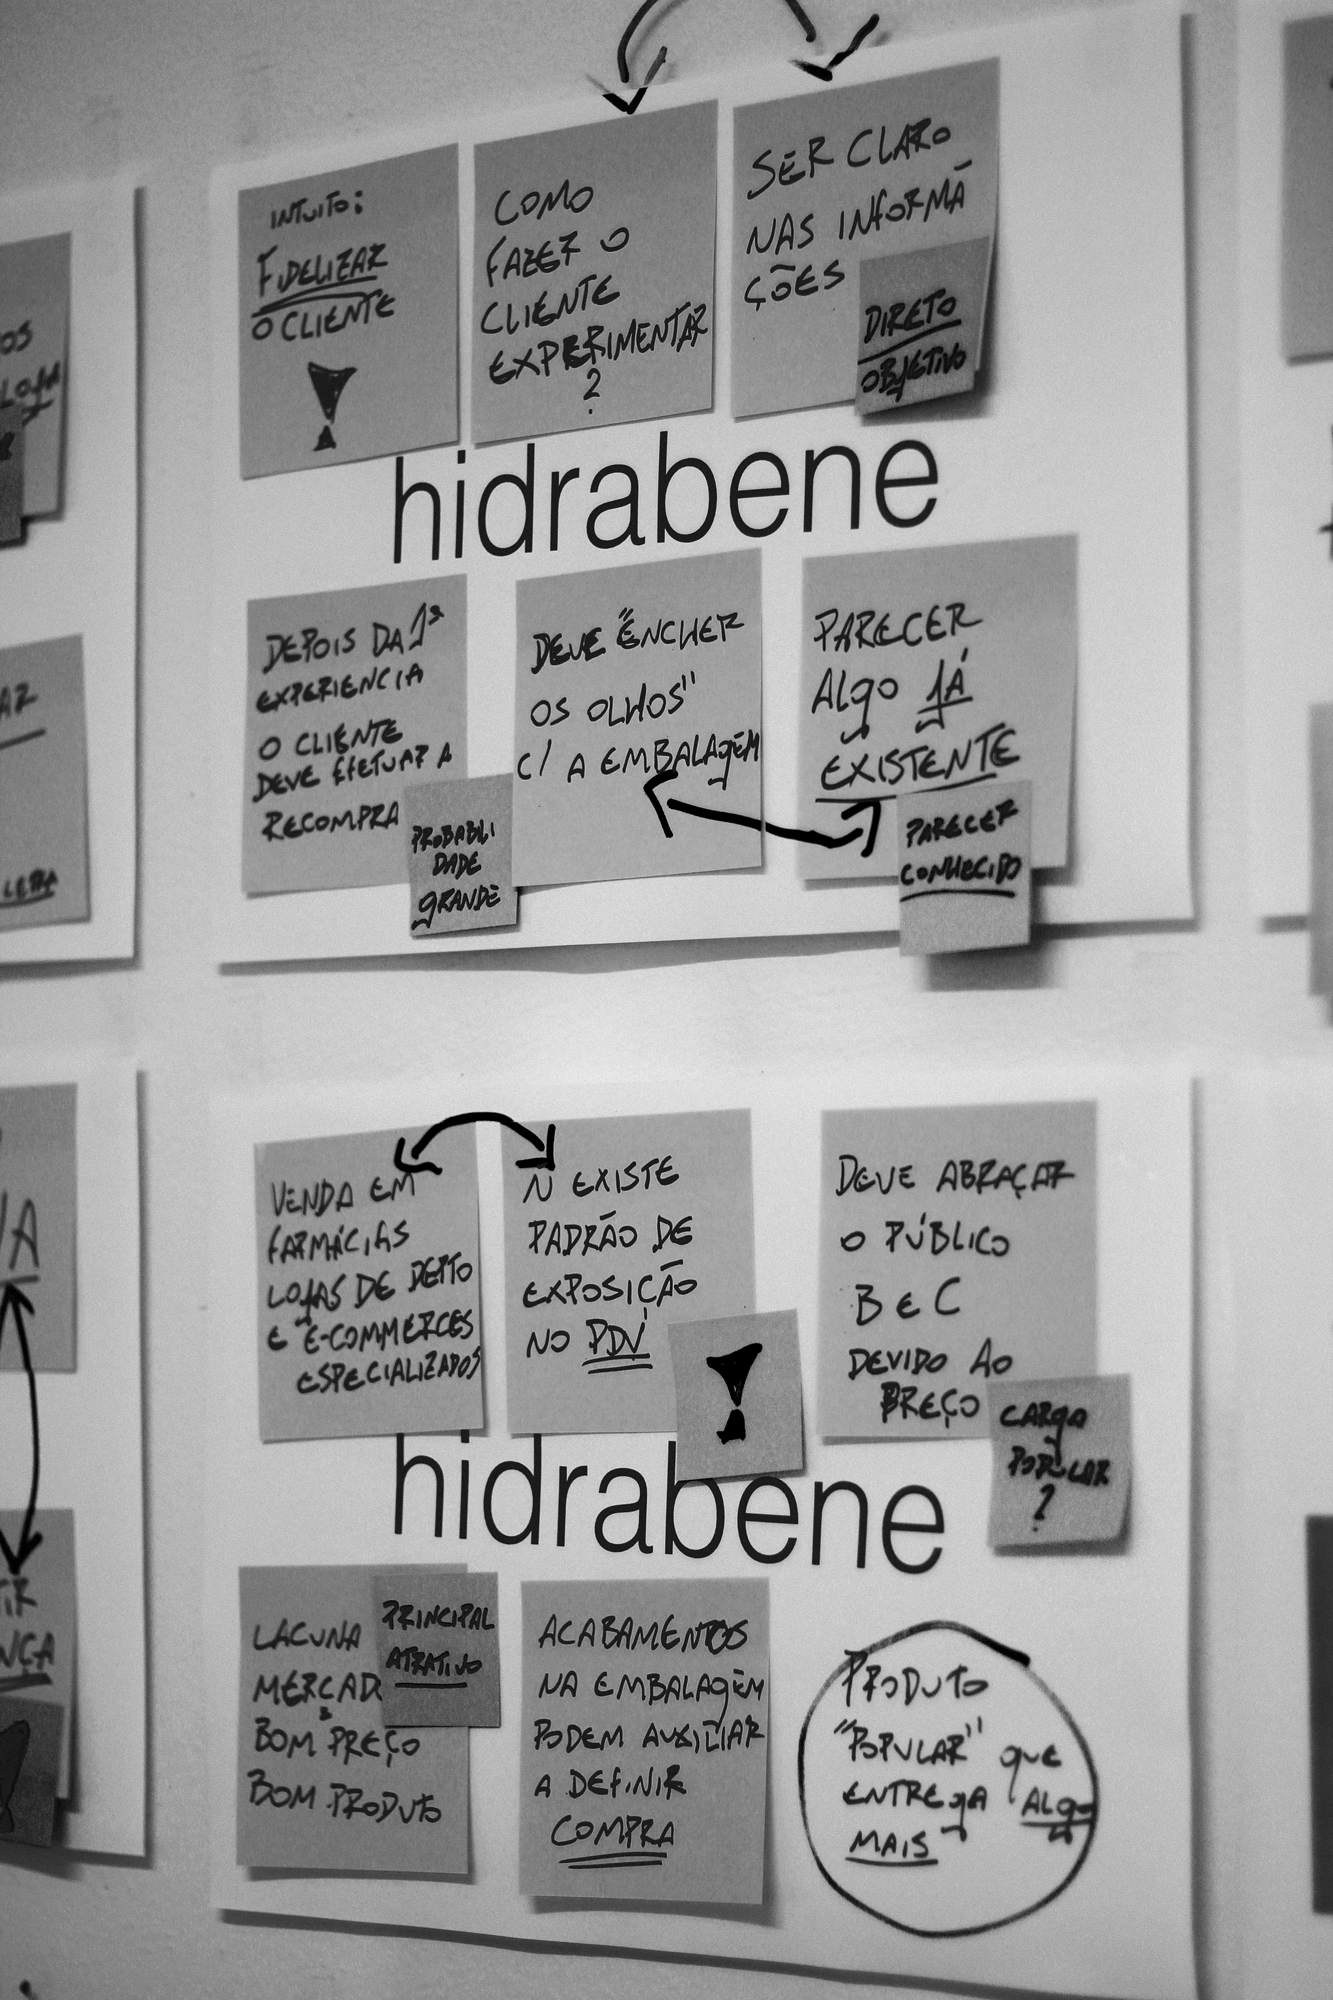 INTUITO:
FIDELIZAR
O CLIENTE
!
COMO
FAZER O
CLIENTE
EXPERIMENTAR
?
SER CLARO
NAS INFORMA
ÇÕES
DIRETO
OBJETIVO
hidrabene
DEPOIS DA 1ª
EXPERIENCIA
O CLIENTE
DEVE EFETUAR A
RECOMPRA
PROBABILI
DADE
GRANDE
DEVE "ENCHER
OS OLHOS"
C/ A EMBALAGEM
PARECER
ALGO JÁ
EXISTENTE
PARECER
CONHECIDO
VENDA EM
FARMÁCIAS
LOJAS DE DEPTO
E E-COMMERCES
ESPECIALIZADOS
N EXISTE
PADRÃO DE
EXPOSIÇÃO
NO PDV
!
DEVE ABRAÇAR
O PÚBLICO
B e C
DEVIDO AO
PREÇO
CARGA
POPULAR
?
hidrabene
LACUNA
MERCADO
BOM PREÇO
BOM PRODUTO
PRINCIPAL
ATRATIVO
ACABAMENTOS
NA EMBALAGEM
PODEM AUXILIAR
A DEFINIR
COMPRA
PRODUTO
"POPULAR" QUE
ENTREGA ALGO
MAIS
OS
LOJA
AZ
LETRA
VA
TIR
NÇA